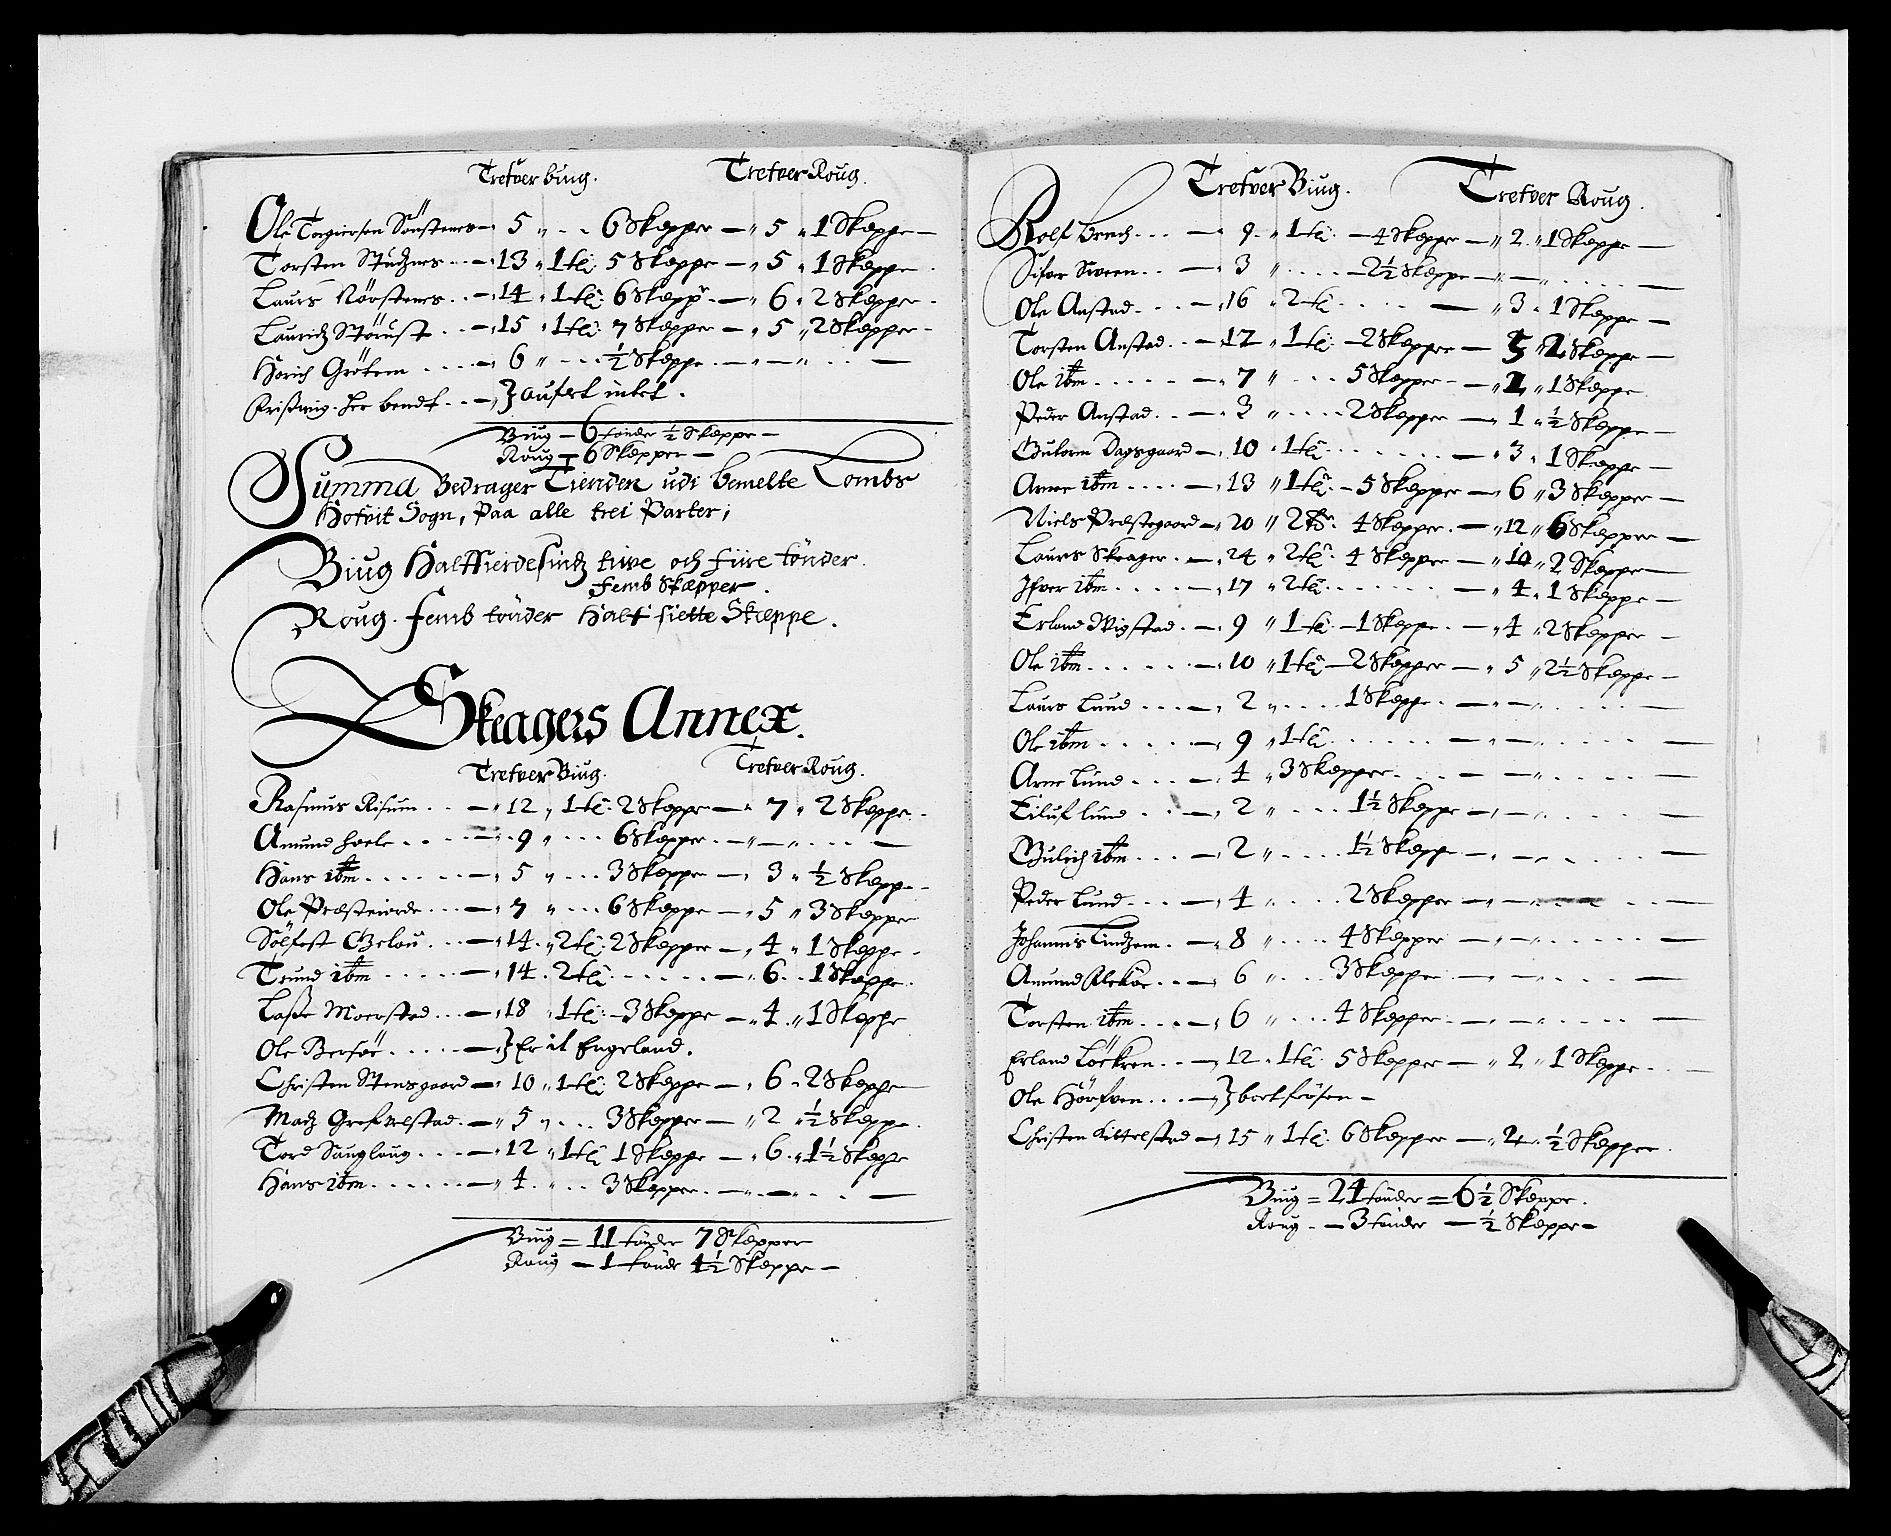 Trefver biug. Trefver Roug.
Ole Torgiersen Sönstenes — 5 „ - - 6 Skepper — „ 5 „ 1 Skeppe —
Torsten Stuchnes - - — 13 „ 1 tü: 5 Skeppe — „ 5 „ 1 Skeppe.
Laurs Nörstenes - - — 14 „ 1 tü: 6 Skepp — „ 6 „ 2 Skepper -
Lauritz Störust - - — 15 „ 1 tü: 7 Skepper — „ 5 „ 2 Skepper —
Hörich Grötem - - - — 6 „ - - ½ Skeppe — „ — „ - - —
her bendt - - — „ } aufert intet.
Biug — 6 tönder ½ Skeppe —
Roug — 6 Skepper —
Summa Bedrager Tienden udi bemelte Lombs
Hofvit Sogn, Paa alle trei Parter;
Biug Halffierdesindz tiuve och fiire tönder.
femb Skepper.
Roug. femb tönder Halt siette Skeppe.
Skeagers Annex.
Trefver Biug. Trefver Roug.
Rasmus Risum - - — „ 12 „ 1 tü: 2 Skeppe — „ 7 „ 2 Skeppe -
Amund Hoele - - - - — „ 9 „ - - - 6 Skepper — „ — „ - - —
Hans ibm - - - - — „ 5 „ - - - 3 Skepper — „ 3 „ ½ Skeppe -
Ole Præsteierde - - — „ 7 „ - - - 6 Skeppe — „ 5 „ 3 Skepper
Sölfest - - — „ 14 „ 2 tü: 2 Skepper — „ 4 „ 1 Skeppe -
Trund ibm - - - - — „ 14 „ 2 tü - - - - — „ 6 „ 1 Skeppe.
Lasse Moerstad - - — „ 18 „ 1 tü: — 3 Skeppe — „ 4 „ 1 Skeppe
Ole - - - - — } Er it Engeland.
Christen Stensgaard — „ 10 „ 1 tü: 2 Skeppe — „ 6 „ 2 Skeppe
Madz Grefrelstad - — „ 5 „ - - 3 Skepper — „ 2 „ ½ Skeppe.
Tord Sauglaug - - — „ 12 „ 1 tü 1 Skeppe — „ 6 „ 1½ Skeppe
Hans ibm - - - - — „ 4 „ - - 3 Skepper — „ — „ - - —
Biug = 11 tönder 7 Skepper
Roug — 1 tönde 4½ Skeppe —
Trefver Biug. Trefver Roug.
Rolf - - - — „ 9 „ 1 tü: — 4 Skepper — „ 2 „ 1 Skeppe —
Sifer Sveen - - — „ 3 „ - - - — 2½ Skeppe — „ — „ - - - —
Ole Anstad - - - — „ 16 „ 2 tü - - - — „ 3 „ 1 Skeppe —
Torsten Anstad - - — „ 12 „ 1 tü: — 2 Skepper — 5 „ 1 Skeppe —
Ole ibm - - - - — „ 7 „ - - - 5 Skepper - — „ 1 „ 1 Skeppe
Peder Anstad - - — „ 3 „ - - - 2 Skepper — „ 1 „ ½ Skeppe —
Gutorm Dagsgaard — „ 10 „ 1 tü - - - - — „ 3 „ 1 Skeppe —
Arne ibm - - - — „ 13 „ 1 tü - 5 Skepper — „ 6 „ 3 Skepper —
Niels Præstegaard — „ 20 „ 2 tö: 4 Skepper - — „ 12 „ 6 Skepper —
Laurs Skeager - — „ 24 „ 2 tü: 4 Skepper — „ 10 „ 2 Skepper —
Ifver ibm - - - — „ 17 „ 2 tü - - - - — „ 4 „ 1 Skeppe —
Erland Wigstad - — „ 9 „ 1 tü — 1 Skeppe - — „ 4 „ 2 Skepper —
Ole ibm - - - - — „ 10 „ 1 tü — 2 Skepper — „ 5 „ 2½ Skeppe —
Laurs Lund - - - — „ 2 „ - - - 1 Skeppe - — „ — „ - - - —
Ole ibm - - - - — „ 9 „ 1 tü - - - - — „ — „ - - - —
Arne Lund - - - — „ 4 „ 3 Skepper - - - — „ — „ - - - —
Eiluf lund - - — „ 2 „ - - - 1½ Skeppe — „ — „ - - - —
Gulich ibm - - - — „ 2 „ - - - 1½ Skeppe — „ — „ - - - —
Peder Lund - - - — „ 4 „ - - - 2 Skepper — „ — „ - - - —
Johannis Lindzem - — „ 8 „ - - - 4 Skepper — „ — „ - - - —
Amund - - — „ 6 „ - - - 3 Skepper — „ — „ - - - —
Torsten ibm - - - — „ 6 „ - - - 4 Skepper - — „ — „ - - - —
Erland Löckren - - — „ 12 „ 1 tü: 5 Skepper — „ 2 „ 1 Skeppe - —
Ole Hörfven - - - — „ } bortfrösen —
Christen Kittelstad — „ 15 „ 1 tü: 6 Skepper — „ 2 „ ½ Skepper.
Biug = 24 tönder = 6½ Skeppe.
Roug - — 3 tönder — ½ Skeppe —